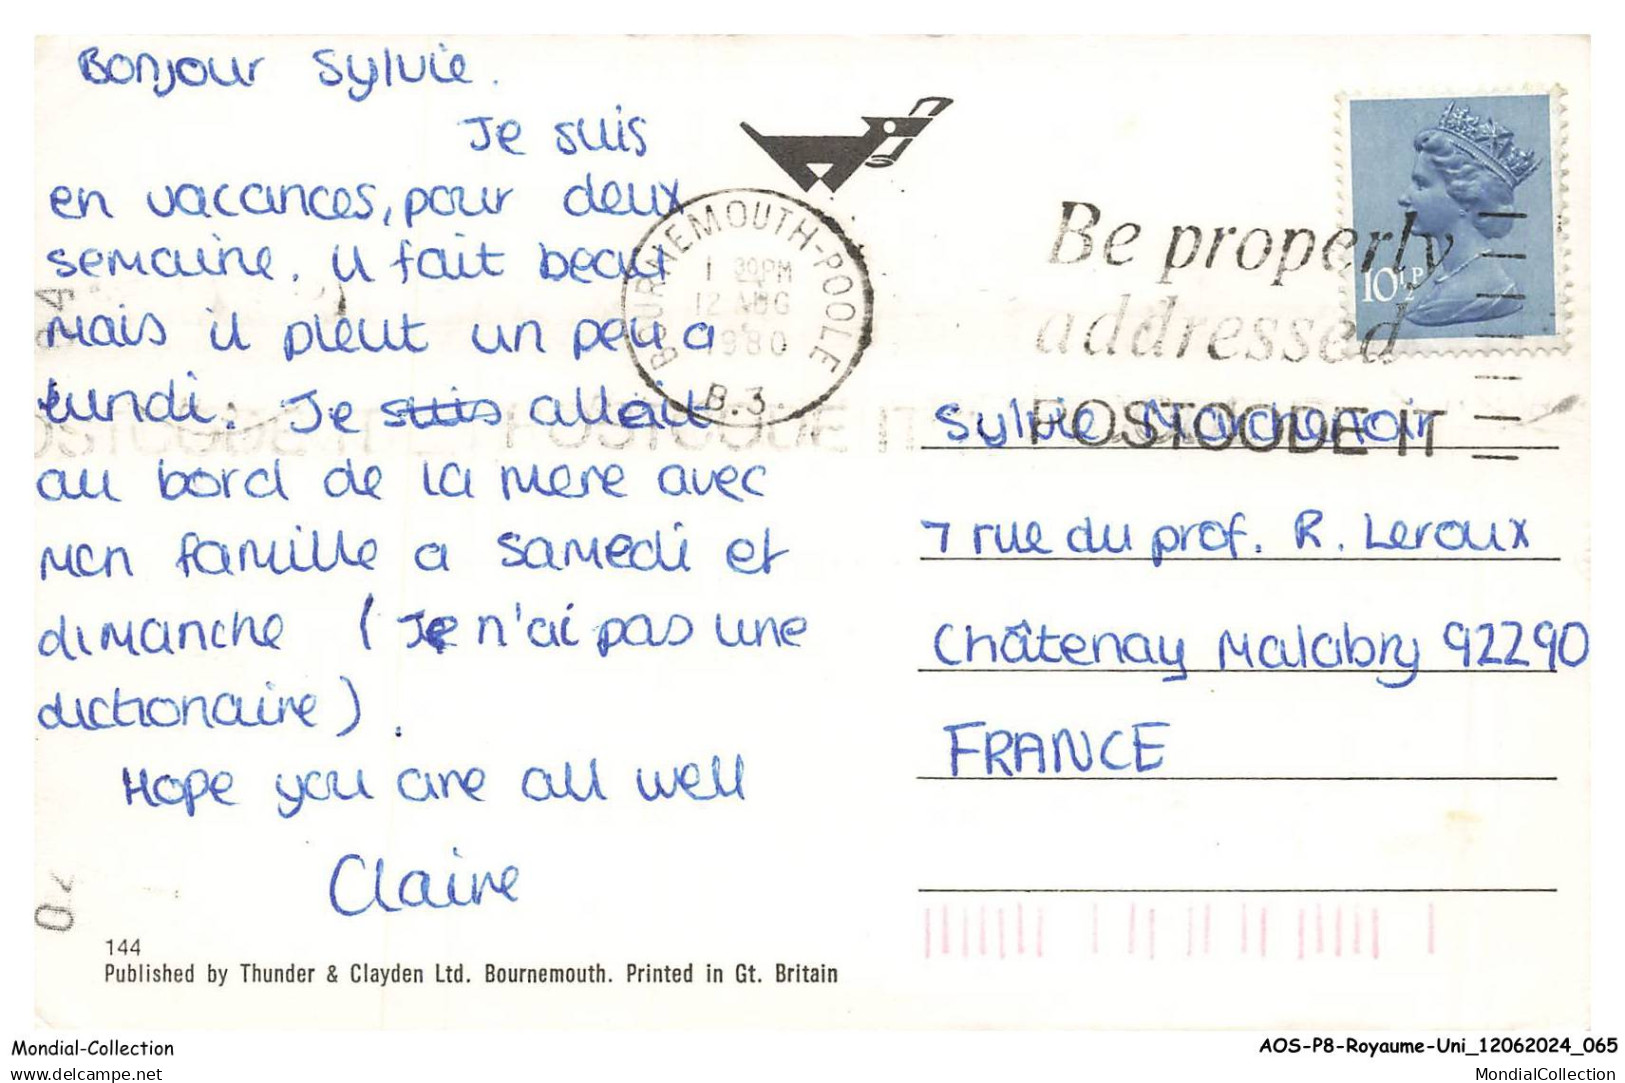 Bonjour Sylvie.
Je suis
en vacances, pour deux
semaine. il fait beau
mais il pleut un peu a
lundi. Je suis allait
au bord de la mere avec
mon famille a samedi et
dimanche (Je n'ai pas une
dictionaire).
Hope you are all well
Claire
144
Published by Thunder & Clayden Ltd. Bournemouth. Printed in Gt. Britain
BOURNEMOUTH-POOLE
1 30PM
12 AUG
1980
B.3
Be properly
addressed
POSTCODE IT
10½P
Sylvie Marchenoir
7 rue du prof. R. Leroux
Châtenay Malabry 92290
FRANCE
POSTCODE IT
Mondial-Collection
delcampe.net
AOS-P8-Royaume-Uni_12062024_065
MondialCollection